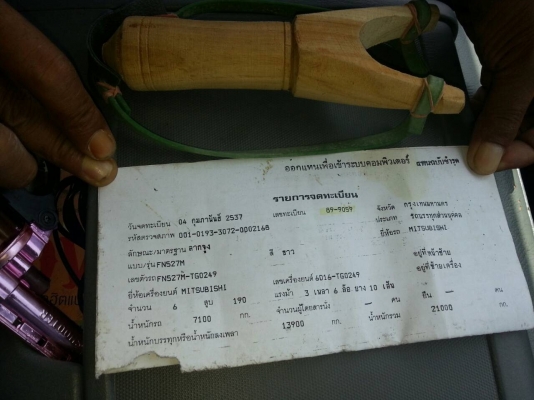 ออกแทนเพื่อเข้าระบบคอมพิวเตอร์ แทนฉบับชำรุด
รายการจดทะเบียน
วันจดทะเบียน 04 กุมภาพันธ์ 2537 เลขทะเบียน 89-9059 จังหวัด กรุงเทพมหานคร
รหัสตรวจสภาพ 001-0193-3072-0002168 ประเภท รถบรรทุกส่วนบุคคล
ลักษณะ/มาตรฐาน ลากจูง ยี่ห้อรถ MITSUBISHI
แบบ/รุ่น FN527M สี ขาว
เลขตัวรถ FN527M-TG0249 อยู่ที่หน้าซ้าย
ยี่ห้อเครื่องยนต์ MITSUBISHI เลขเครื่องยนต์ 6D16-TG0249 อยู่ที่ซ้ายเครื่อง
จำนวน 6 สูบ 190 แรงม้า 3 เพลา 6 ล้อ ยาง 10 เส้น
น้ำหนักรถ 7100 กก. จำนวนผู้โดยสารนั่ง — คน ยืน — คน
น้ำหนักบรรทุกหรือน้ำหนักลงเพลา 13900 กก. น้ำหนักรวม 21000 กก.